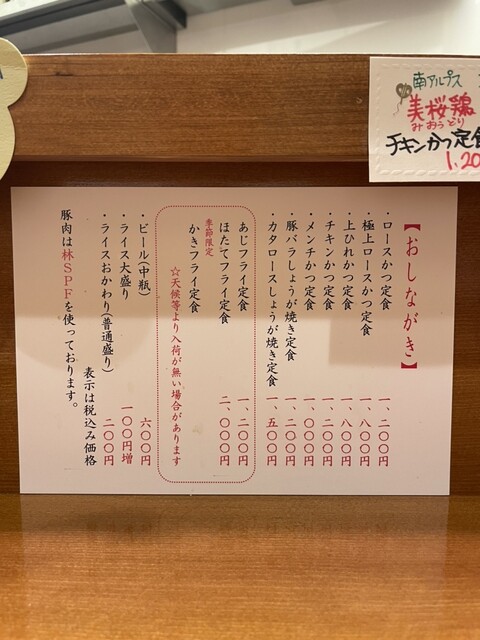 南アルプス
美桜鶏
みおうどり
チキンかつ定食
1,20
【おしながき】
・ロースかつ定食 一、二〇〇円
・極上ロースかつ定食 一、八〇〇円
・上ひれかつ定食 一、八〇〇円
・チキンかつ定食 一、二〇〇円
・メンチかつ定食 一、〇〇〇円
・豚バラしょうが焼き定食 一、二〇〇円
・カタロースしょうが焼き定食 一、五〇〇円
あじフライ定食 一、二〇〇円
ほたてフライ定食 二、〇〇〇円
季節限定
かきフライ定食
☆天候等より入荷が無い場合があります
・ビール(中瓶) 六〇〇円
・ライス大盛り 一〇〇円増
・ライスおかわり(普通盛り) 二〇〇円
表示は税込み価格
豚肉は林SPFを使っております。